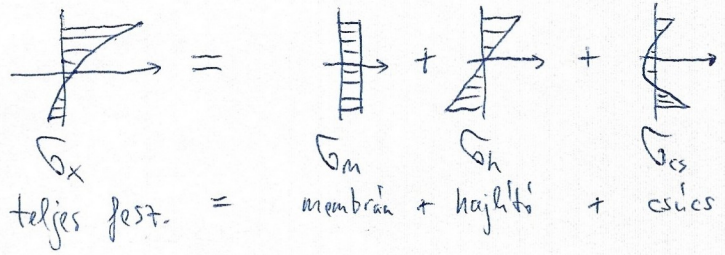 = + +
σx σm σh σcs
teljes fesz. = membrán + hajlító + csúcs